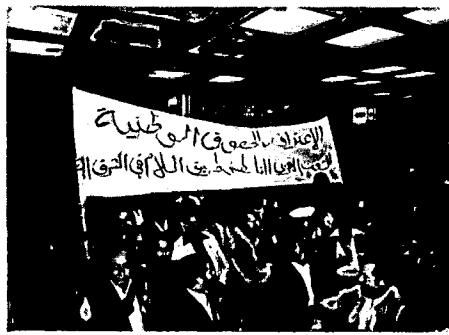 الاعتراف بالحقوق الوطنية
للشعب العربي الفلسطيني طريق السلام في الشرق